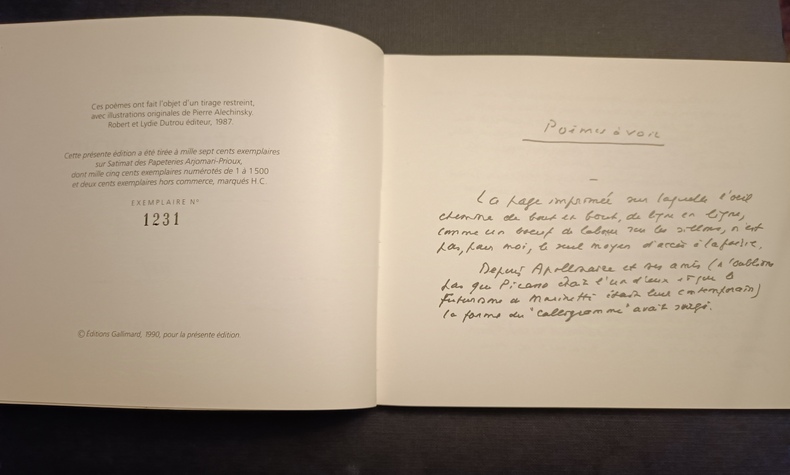 Ces poèmes ont fait l'objet d'un tirage restreint,
avec illustrations originales de Pierre Alechinsky.
Robert et Lydie Dutrou éditeur, 1987.
Cette présente édition a été tirée à mille sept cents exemplaires
sur Satimat des Papeteries Arjomari-Prioux,
dont mille cinq cents exemplaires numérotés de 1 à 1500
et deux cents exemplaires hors commerce, marqués H.C.
EXEMPLAIRE N°
1231
© Éditions Gallimard, 1990, pour la présente édition.
Poèmes à voir
La page imprimée sur laquelle l'œil
chemine de bout en bout, de ligne en ligne,
comme un bœuf de labour sur les sillons, n'est
pas, pour moi, le seul moyen d'accès à la poésie.
Depuis Apollinaire et ses amis (n'oublions
pas que Picasso était l'un d'eux et que le
futurisme de Marinetti était leur contemporain)
la forme du "calligramme" avait surgi.